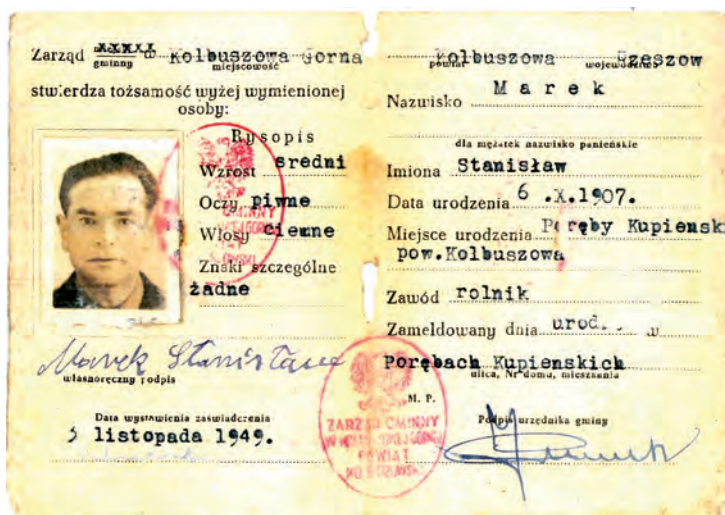 Zarząd gminny w Kolbuszowa Gorna
miejscowość
stwierdza tożsamość wyżej wymienionej
osoby:
Rysopis
Wzrost sredni
Oczy piwne
Włosy ciemne
Znaki szczególne
żadne
Marek Stanisław
własnoręczny podpis
Data wystawienia zaświadczenia
listopada 1949.
Kolbuszowa Rzeszow
powiat województwo
Nazwisko Marek
dla mężatek nazwisko panieńskie
Imiona Stanisław
Data urodzenia 6.X.1907.
Miejsce urodzenia Poręby Kupienski
pow.Kolbuszowa
Zawód rolnik
Zameldowany dnia urodz. w
Porębach Kupienskich
ulica, Nr domu, mieszkania
M. P.
Podpis urzędnika gminy
ZARZĄD GMINNY
POWIAT